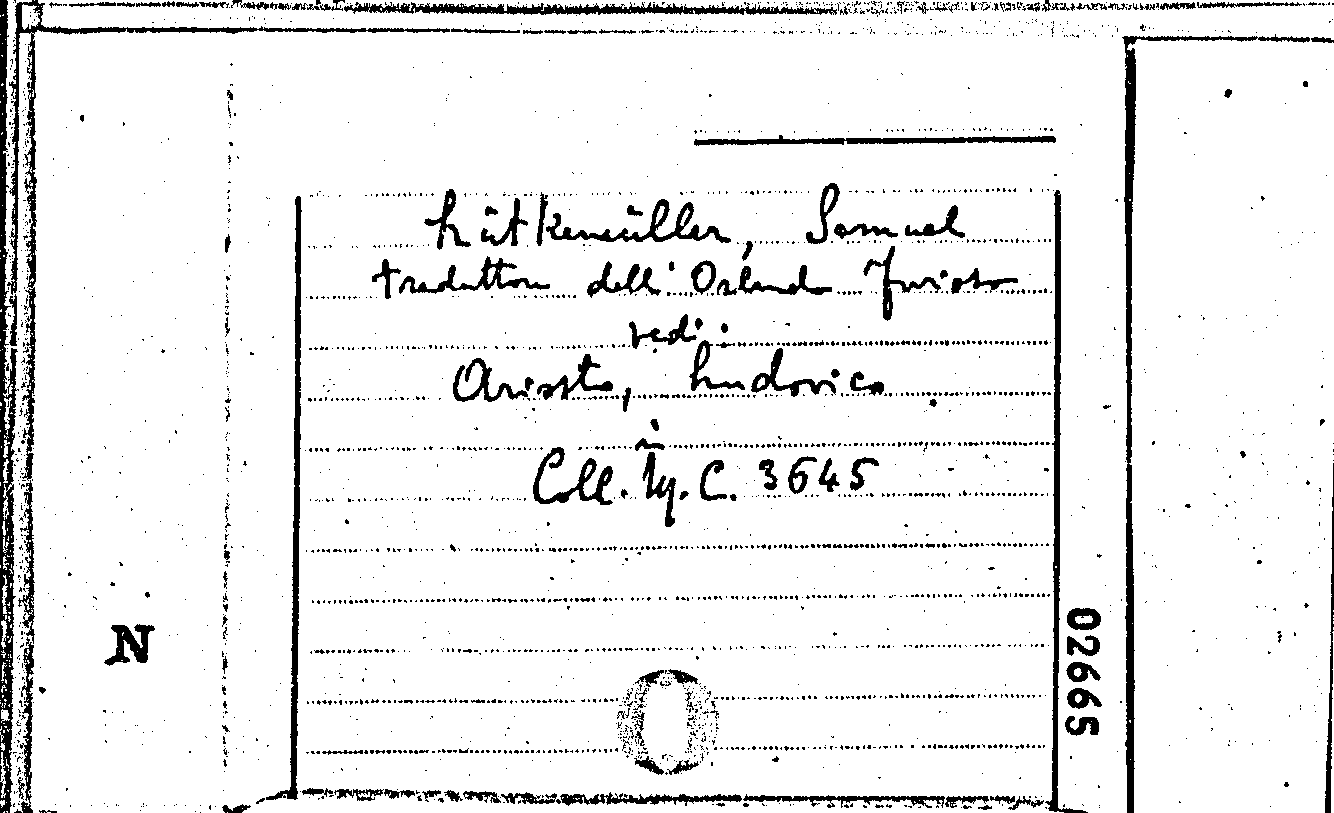 Lütkemüller, Samuel
traduttore dell'Orlando Furioso
vedi:
Ariosto, Ludovico
in
Coll. Ug. C. 3645
N
02665